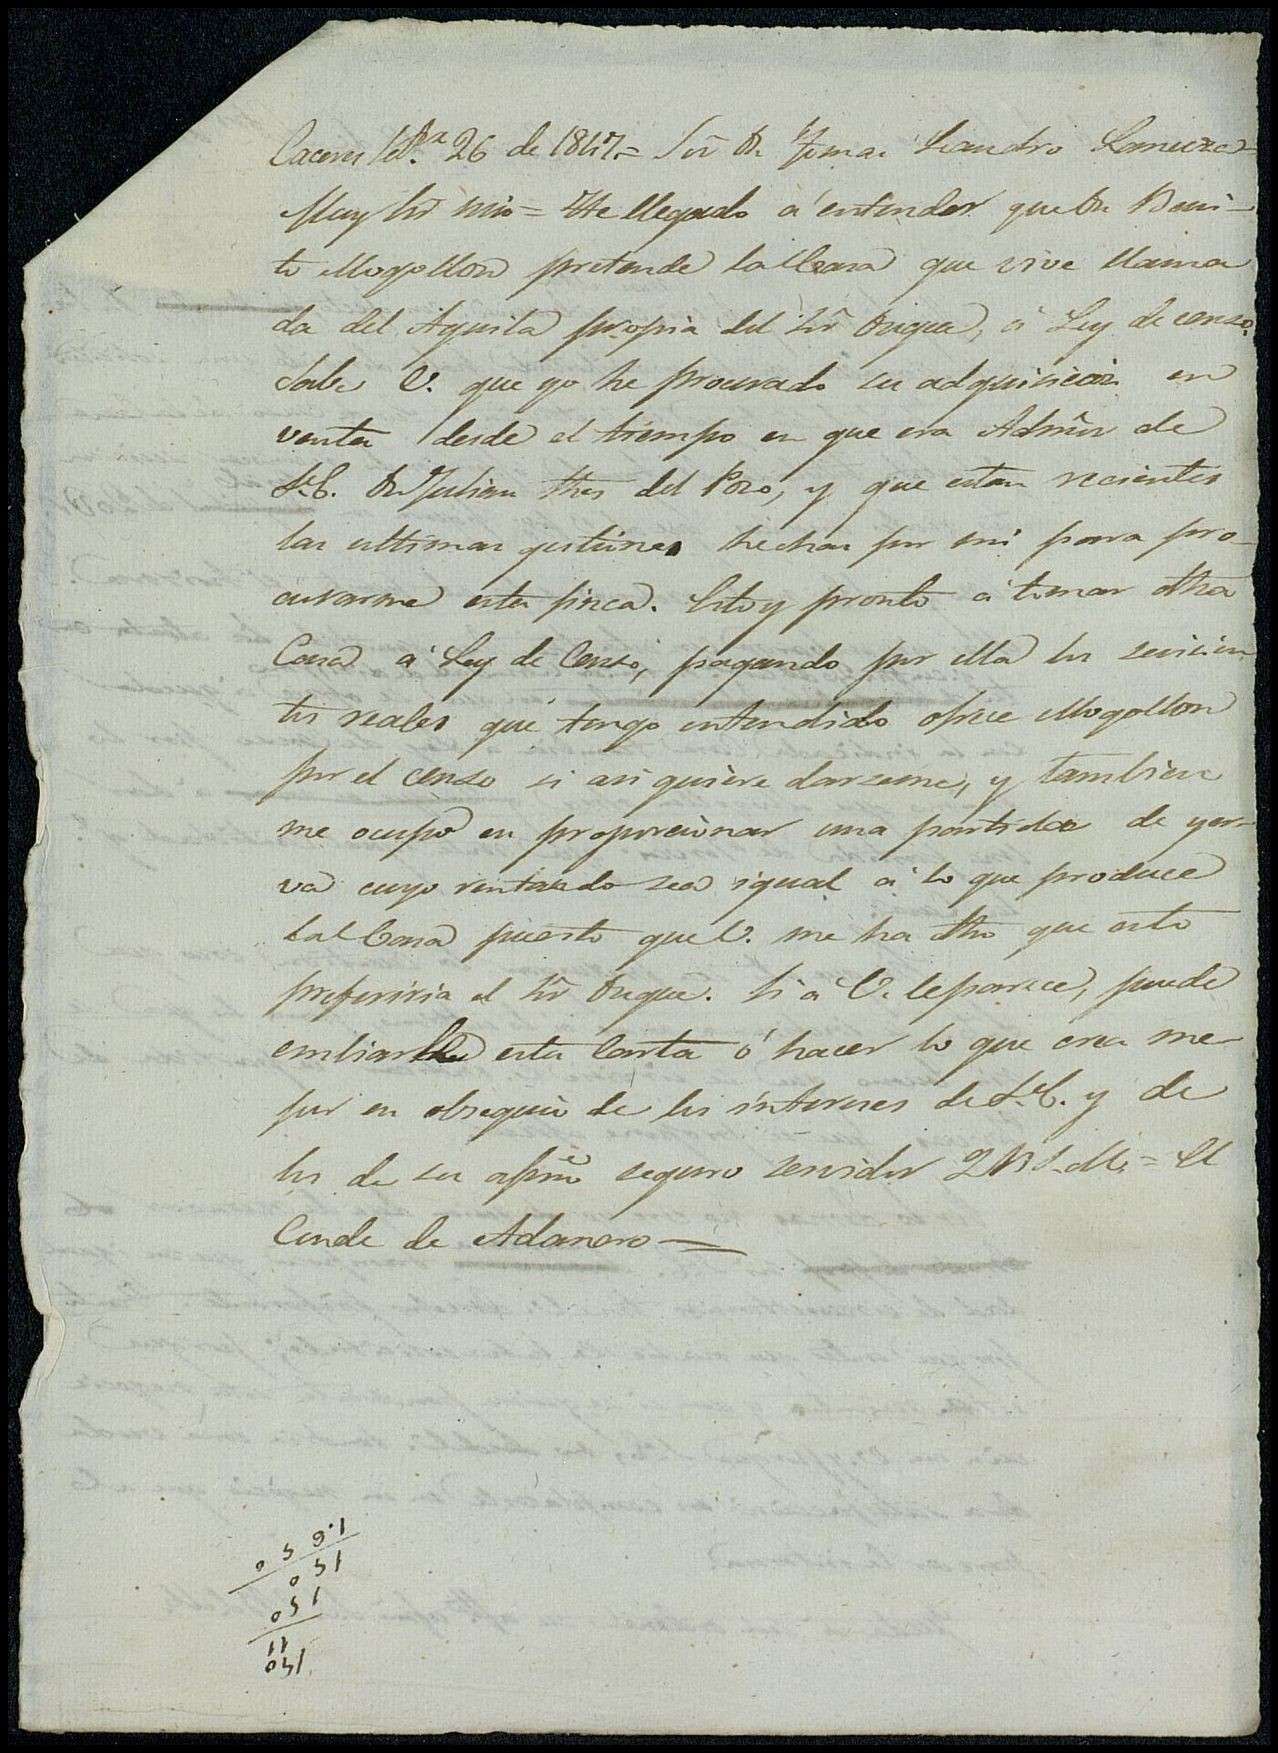 Caceres Feb.ª 26 de 1847.= Sõr Dn Tomas Leandro
Muy Sõr mio = He llegado á entender que Dn Beni-
to Mogollon pretende la Casa que vive llama
da del Aguila propia del Sõr Duque, á Ley de censo.
Sabe V. que yo he procurado su adquisicion en
venta desde el tiempo en que era Admõr de
S.E. Dn Julian del Pozo, y que estan recientes
las ultimas gestiones hechas por mi para pro-
curarme esta finca. Estoy pronto á tomar dha
Casa á Ley de Censo, pagando por ella los seiscien
tos reales que tengo entendido ofrece Mogollon
por el censo si asi quiere darseme, y tambien
me ocupo en proporcionar una partida de yer-
va cuyo rentuado sea igual á lo que produce
tal Casa puesto que V. me ha dho que esto
preferiria el Sõr Duque. Si á V. le parece, puede
embiarle esta Carta ó hacer lo que crea me-
jor en obsequio de los intereses de S.E. y de
los de su afmõ seguro servidor Q B S. M. = El
Conde de Adanero =